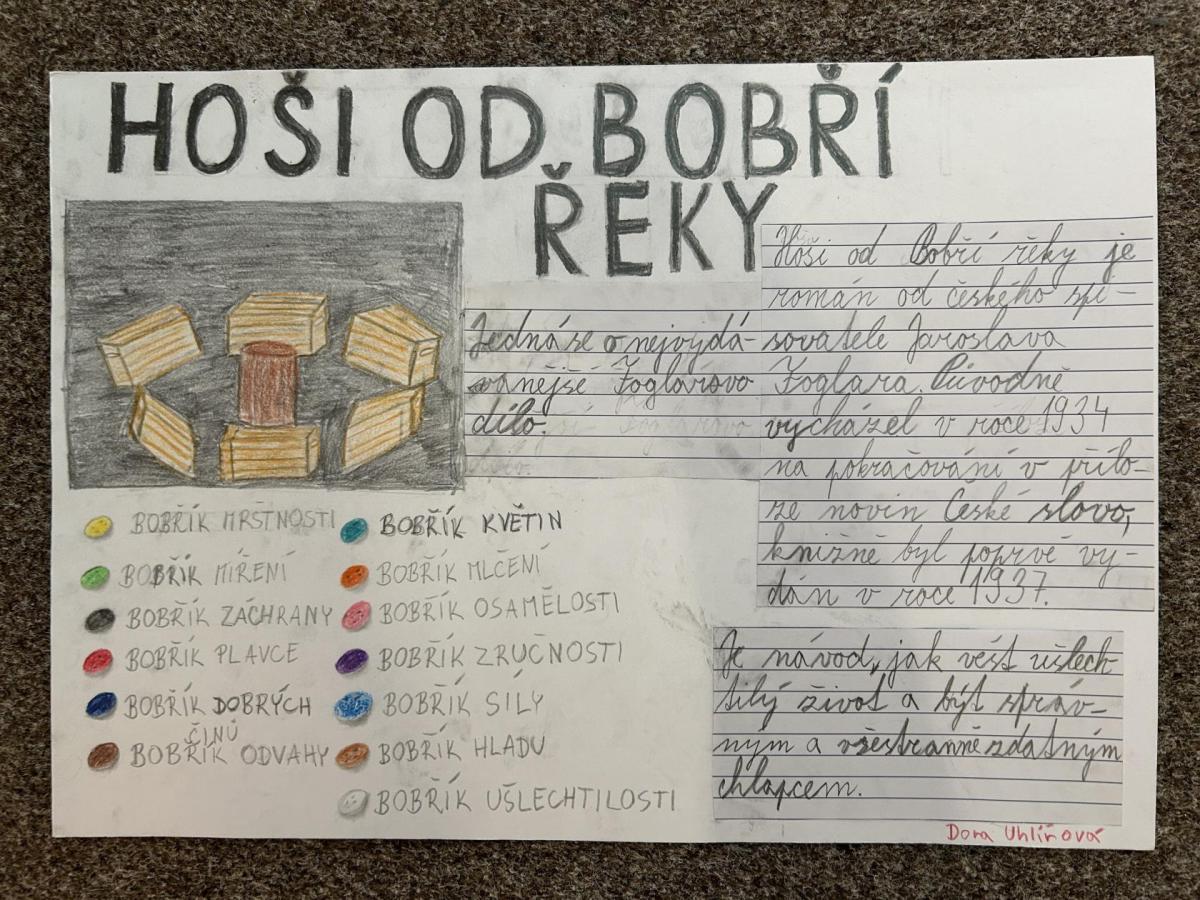 HOŠI OD BOBŘÍ
ŘEKY
Jedná se o nejvydá-
vanější Foglarovo
dílo.
Hoši od Bobří řěky je
román od českého spi-
sovatele Jaroslava
Foglara. Původně
vycházel v roce 1934
na pokračování v přílo-
ze novin České slovo,
knižně byl poprvé vy-
dán v roce 1937.
BOBŘÍK MRSTNOSTI
BOBŘÍK MÍŘENÍ
BOBŘÍK ZÁCHRANY
BOBŘÍK PLAVCE
BOBŘÍK DOBRÝCH
ČINŮ
BOBŘÍK ODVAHY
BOBŘÍK KVĚTIN
BOBŘÍK MLČENÍ
BOBŘÍK OSAMĚLOSTI
BOBŘÍK ZRUČNOSTI
BOBŘÍK SÍLY
BOBŘÍK HLADU
BOBŘÍK UŠLECHTILOSTI
Je návod, jak vést ušlech
tilý život a být správ-
ným a všestranně zdatným
chlapcem.
Dora Uhlířová